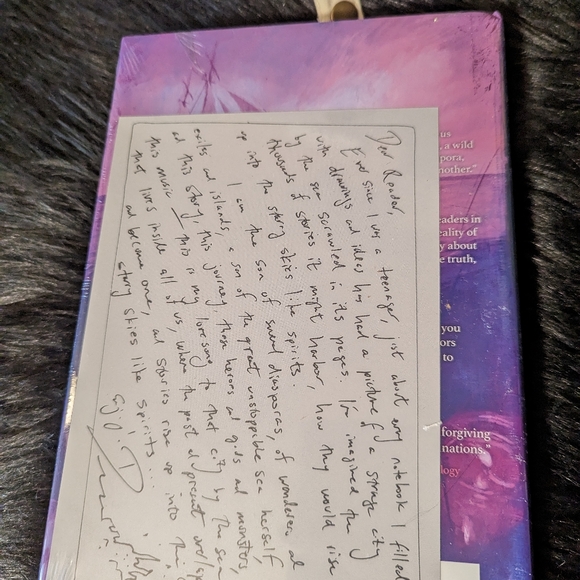 Dear Reader,
Ever since I was a teenager, just about every notebook I filled
with drawings and ideas has had a picture of a strange city
by the sea scrawled in its pages. I've imagined the
thousands of stories it might harbor, how they would rise
up into the starry skies like spirits.
I am the son of several diasporas, of wanderers and
exiles and islands, a son of the great unstoppable sea herself
and this story, this journey, these heroes and gods and monsters,
this music — this is my love song to that city by the sea
that lives inside all of us, where the past and present
and become one, and stories rise up into the
starry skies like spirits...
us
, a wild
pora,
nother."
eaders in
eality of
y about
e truth,
you
ors
to
forgiving
nations."
logy